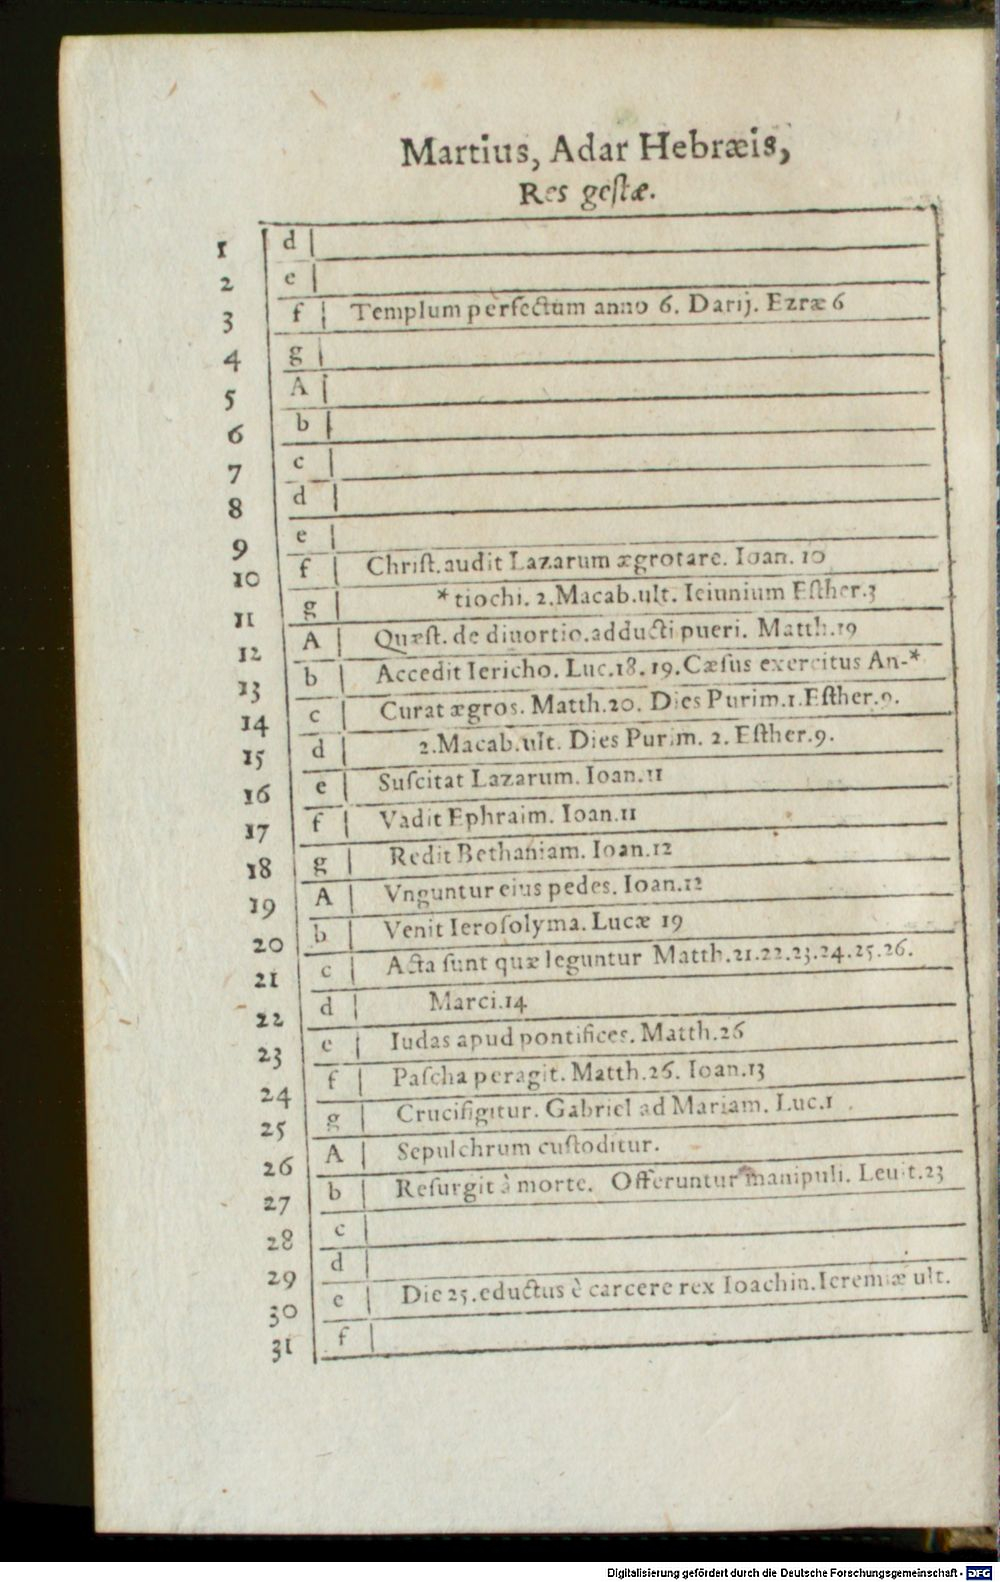 Martius, Adar Hebræis,
Res gestæ.
1 d
2 e
3 f Templum perfectum anno 6. Darij. Ezræ 6
4 g
5 A
6 b
7 c
8 d
9 e
10 f Christ. audit Lazarum ægrotare. Ioan. 10
11 g *tiochi. 2. Macab. ult. Ieiunium Esther. 3
12 A Quæst. de diuortio. adducti pueri. Matth. 19
13 b Accedit Iericho. Luc. 18. 19. Cæsus exercitus An-*
14 c Curat ægros. Matth. 20. Dies Purim. 1. Esther. 9.
15 d 2. Macab. ult. Dies Purim. 2. Esther. 9.
16 e Suscitat Lazarum. Ioan. 11
17 f Vadit Ephraim. Ioan. 11
18 g Redit Bethaniam. Ioan. 12
19 A Vnguntur eius pedes. Ioan. 12
20 b Venit Ierosolyma. Lucæ 19
21 c Acta sunt quæ leguntur Matth. 21. 22. 23. 24. 25. 26.
22 d Marci. 14
23 e Iudas apud pontifices. Matth. 26
24 f Pascha peragit. Matth. 26. Ioan. 13
25 g Crucifigitur. Gabriel ad Mariam. Luc. 1
26 A Sepulchrum custoditur.
27 b Resurgit à morte. Offeruntur manipuli. Leuit. 23
28 c
29 d
30 e Die 25. eductus è carcere rex Ioachin. Ieremiæ ult.
31 f
Digitalisierung gefördert durch die Deutsche Forschungsgemeinschaft - DFG